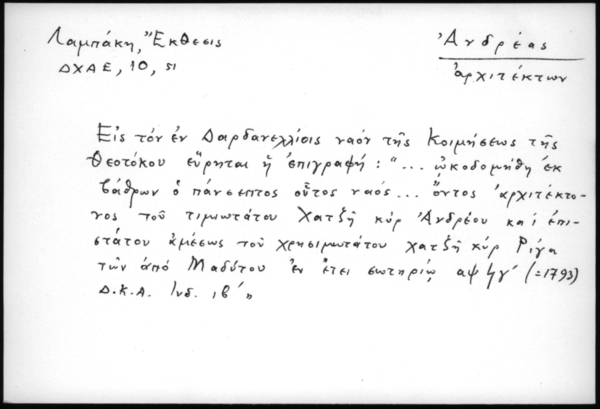 Λαμπάκη, Ἔκθεσις
ΔΧΑΕ, 10, 51
Ἀνδρέας
ἀρχιτέκτων
Εἰς τόν ἐν Δαρδανελλίοις ναόν τῆς Κοιμήσεως τῆς
Θεοτόκου εὕρηται ἡ ἐπιγραφή: "... ᾠκοδομήθη ἐκ
βάθρων ὁ πάνσεπτος οὗτος ναός... ὄντος ἀρχιτέκτο-
νος τοῦ τιμιωτάτου Χατζῆ κύρ Ἀνδρέου καί ἐπι-
στάτου ἀμέσως τοῦ χρησιμωτάτου χατζῆ κύρ Ρίγα
τῶν ἀπό Μαδύτου ἐν ἔτει σωτηρίῳ αψϟγ' (=1793)
Δ.Κ.Α. Ινδ. ιβ'"